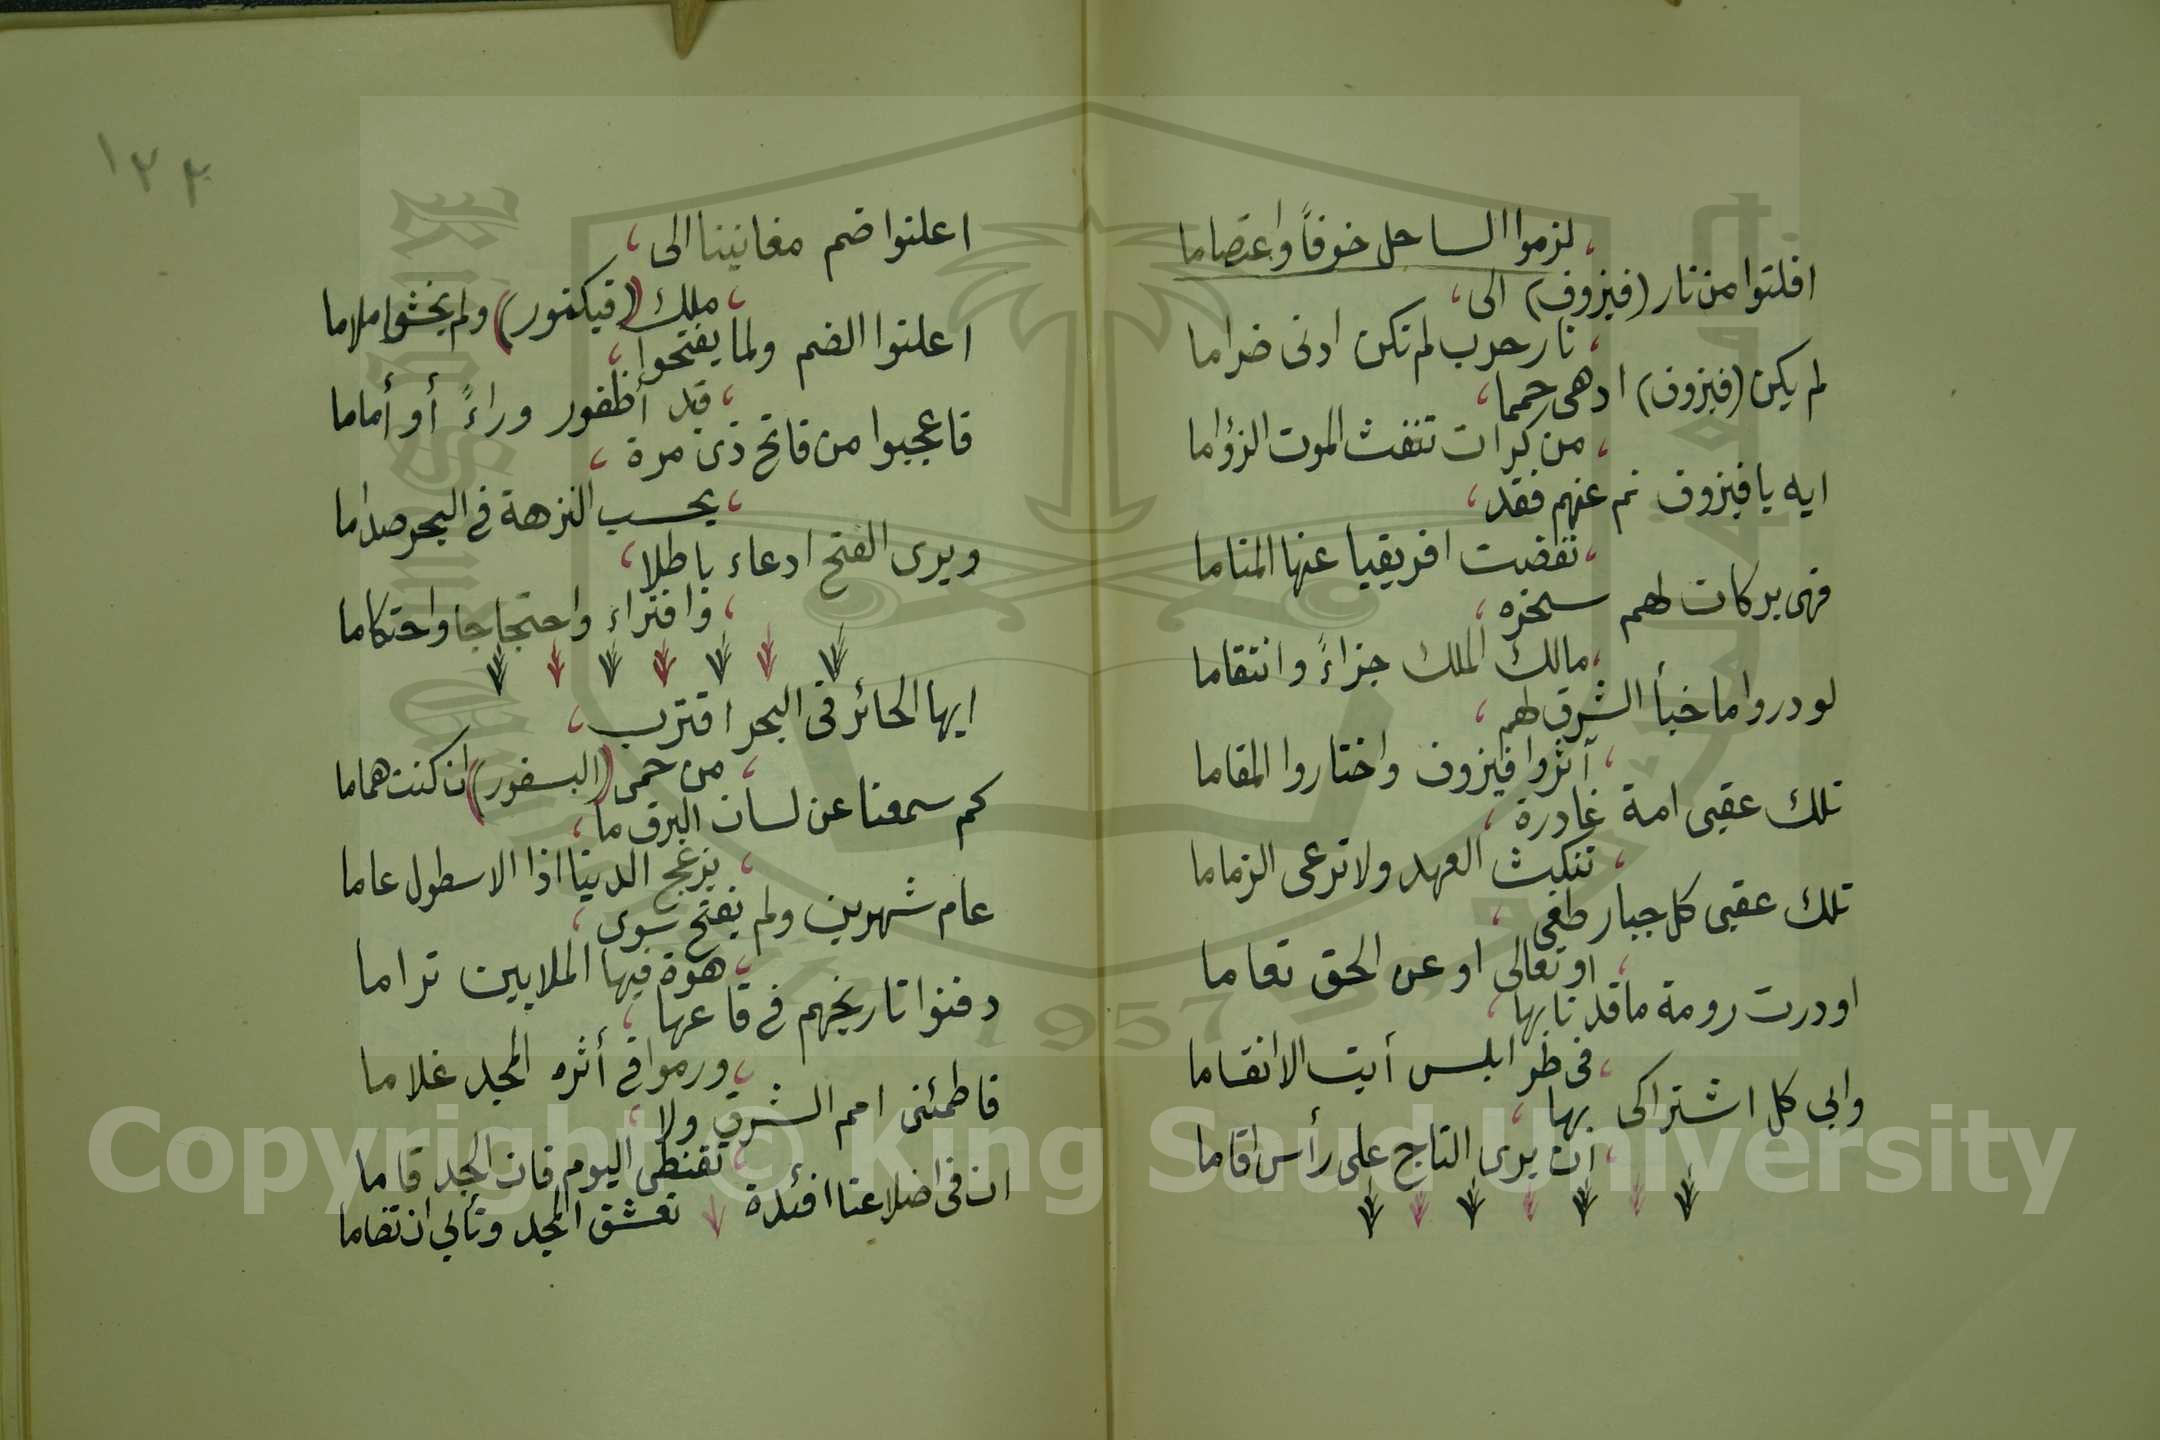 لزموا الساحل خوفاً واعتصاما
افلتوا من نار (فيزوف) الى
نار حرب لم تكن ادنى ضراما
لم يكن (فيزوف) ادهى حمما
من كرات تنفث الموت الزؤاما
ايه يا فيزوف نم عنهم فقد
نفضت افريقيا عنها المناما
فهى بركان لهم سخره
مالك الملك جزاءً وانتقاما
لو دروا ما خبأ الشرق لهم
آثروا فيزوف واختاروا المقاما
تلك عقبى امة غادرة
تنكث العهد ولا ترعى الزماما
تلك عقبى كل جبار طغى
او تعالى او عن الحق تعاما
او درت رومة ما قد نابها
فى طرابلس أبت الا انقساما
وابى كل اشتراكى بها
ان يرى التاج على رأس اقاما
١٢٢
اعلنوا ضم مغانينا الى
ملك (فيكتور) ولم يخشوا ملاما
اعلنوا الضم ولما يفتحوا
قيد أظفور وراءً أو أماما
فاعجبوا من فاتح ذى مرة
يحسب النزهة في البحر صداما
ويرى الفتح ادعاء باطلا
وافتراء واحتجاجا واحتكاما
ايها الحائر فى البحر اقترب
من حمى (البسفور) ان كنت هماما
كم سمعنا عن لسان البرق ما
يزعج الدنيا اذا الاسطول عاما
عام شهرين ولم يفتح سوى
هوة فيها الملايين تراما
دفنوا تاريخهم في قاعها
ورموا في أثره المجد غلاما
فاطمئنى امم الشرق ولا
تقنطى اليوم فان الجد قاما
ان فى اضلاعنا افئدة تعشق المجد وتأبى ان تضاما
Copyright © King Saud University
1957